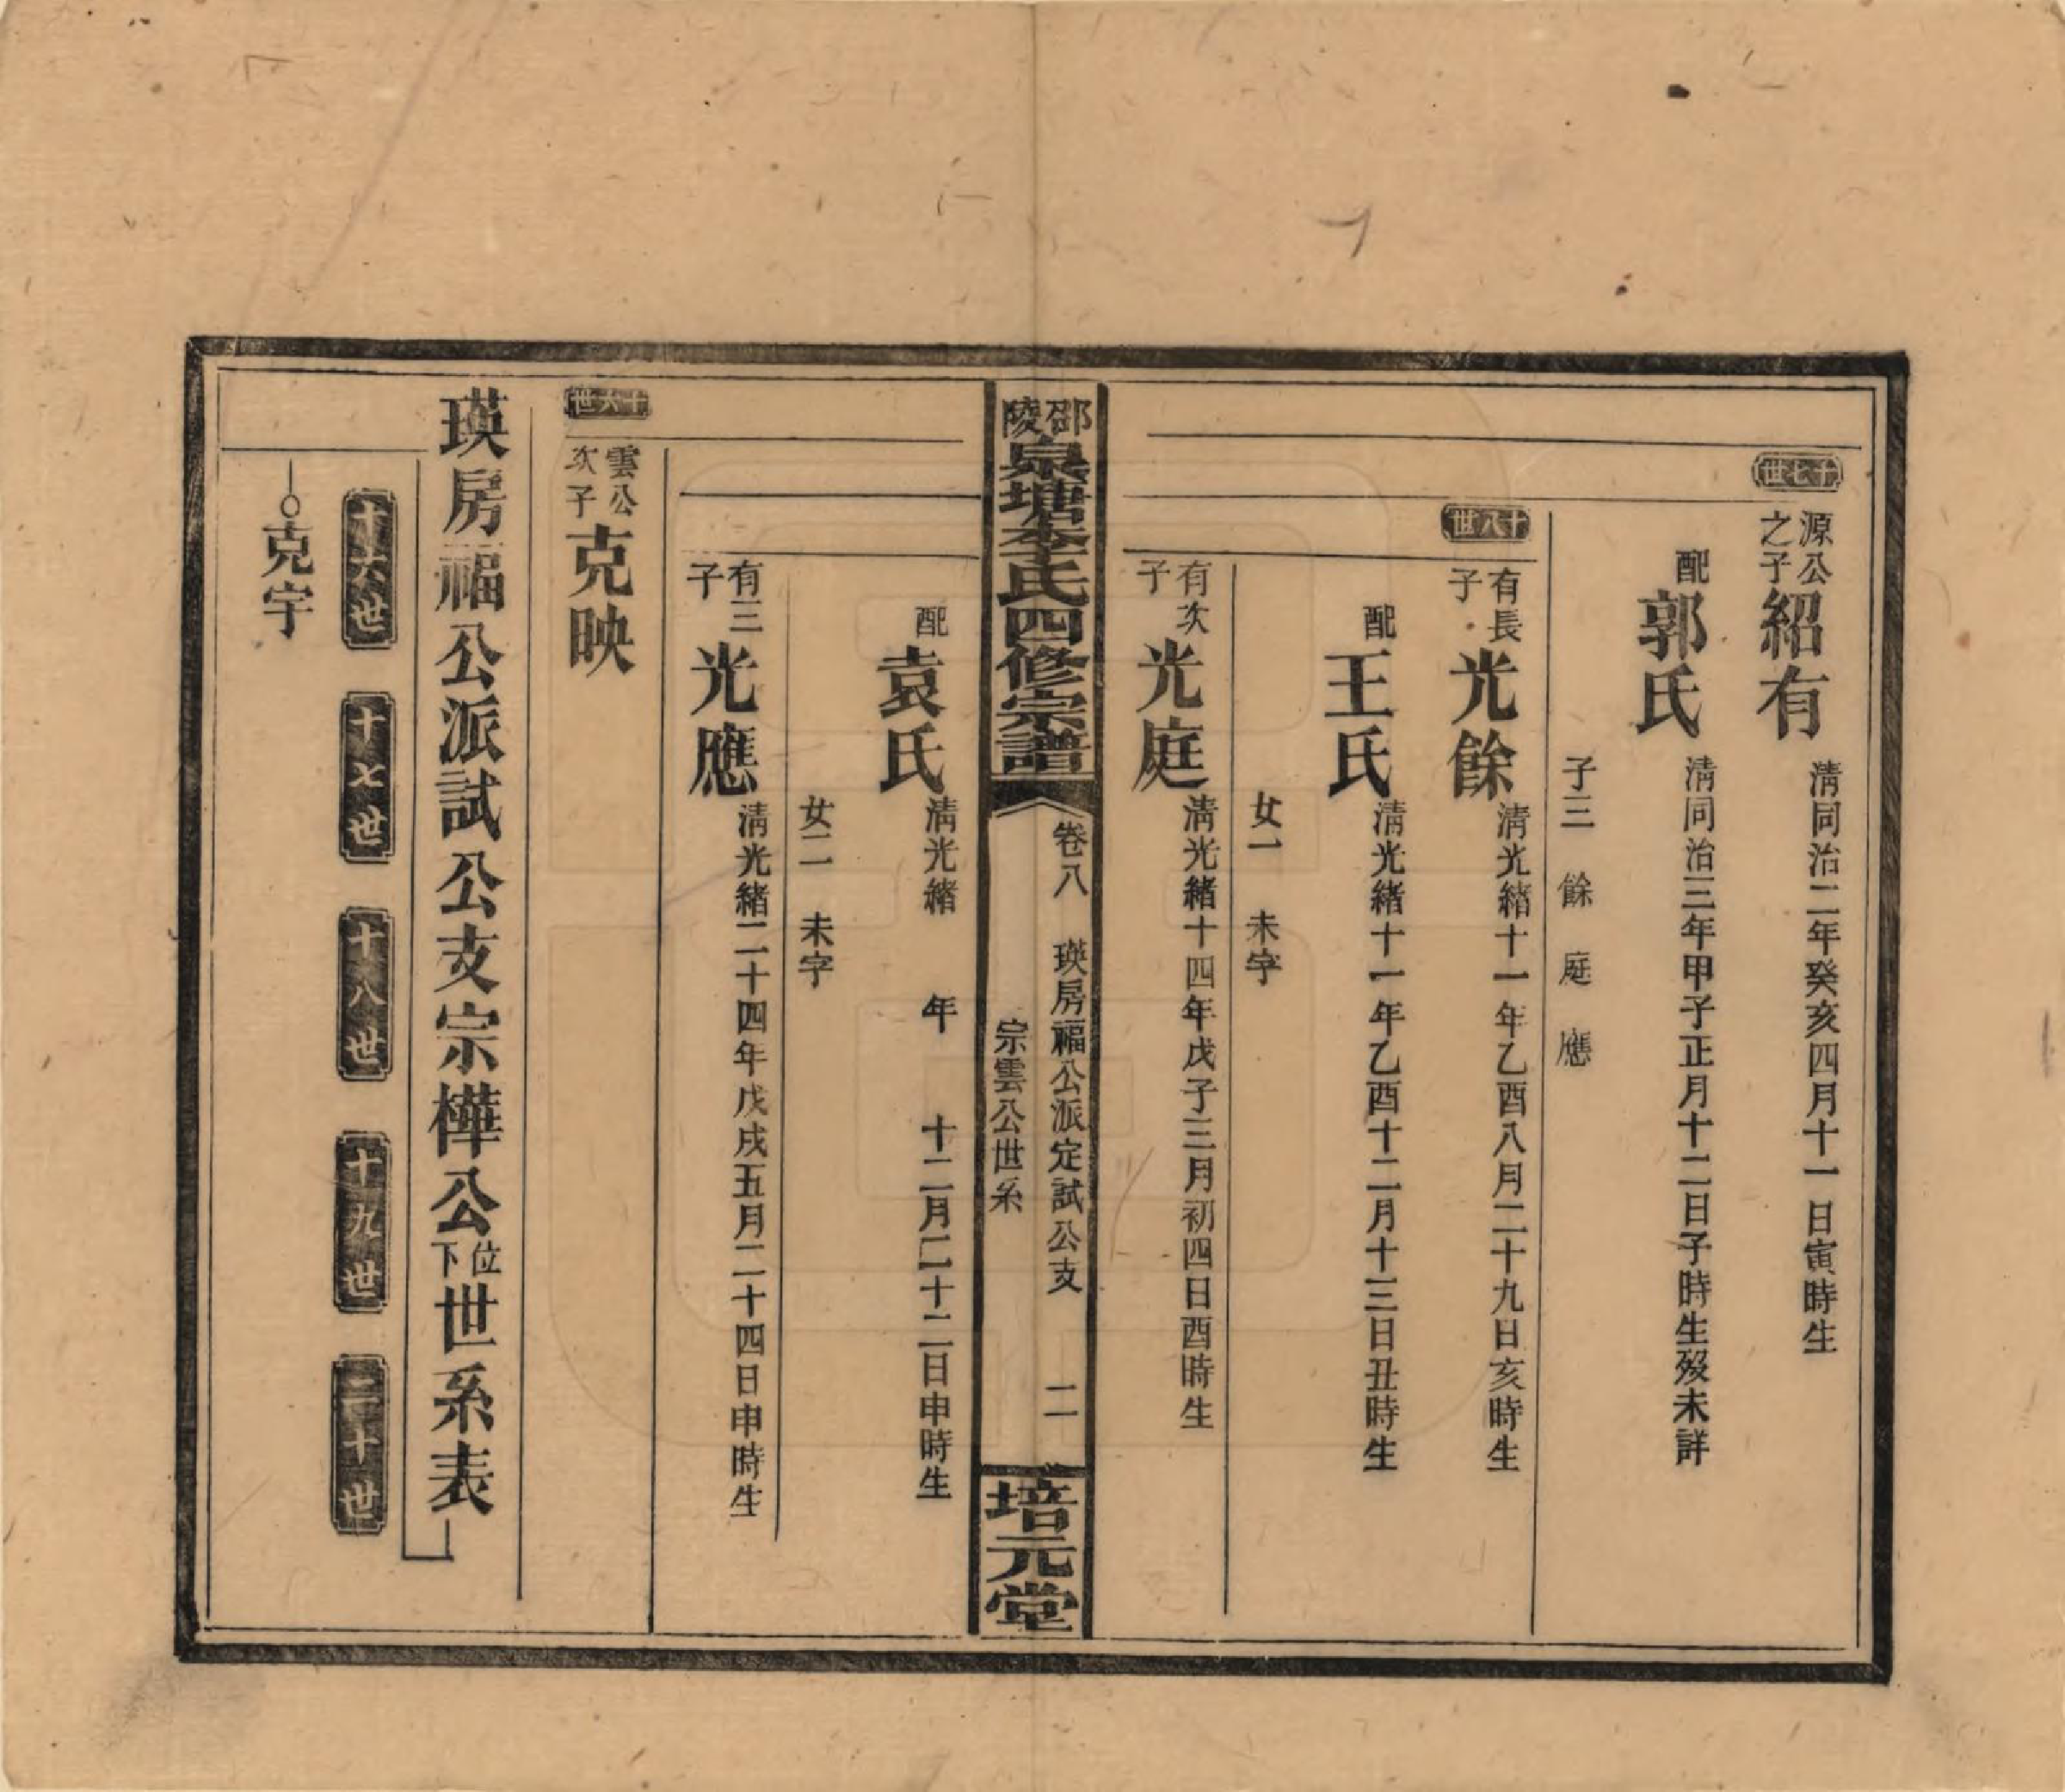 十七世
源公之子紹有 清同治二年癸亥四月十一日寅時生
配郭氏 清同治三年甲子正月十二日子時生歿未詳
子三 餘 庭 應
十八世
有長子光餘 清光緒十一年乙酉八月二十九日亥時生
配王氏 清光緒十一年乙酉十二月十三日丑時生
女一 未字
有次子光庭 清光緒十四年戊子三月初四日酉時生
邵陵泉塘李氏四修宗譜
卷八 瑛房福公派定試公支
宗雲公世系
二
培元堂
配袁氏 清光緒 年 十二月二十二日申時生
女二 未字
有三子光應 清光緒二十四年戊戌五月二十四日申時生
十六世
雲公次子克映
瑛房福公派試公支宗樺公位下世系表
十六世 十七世 十八世 十九世 二十世
克宇